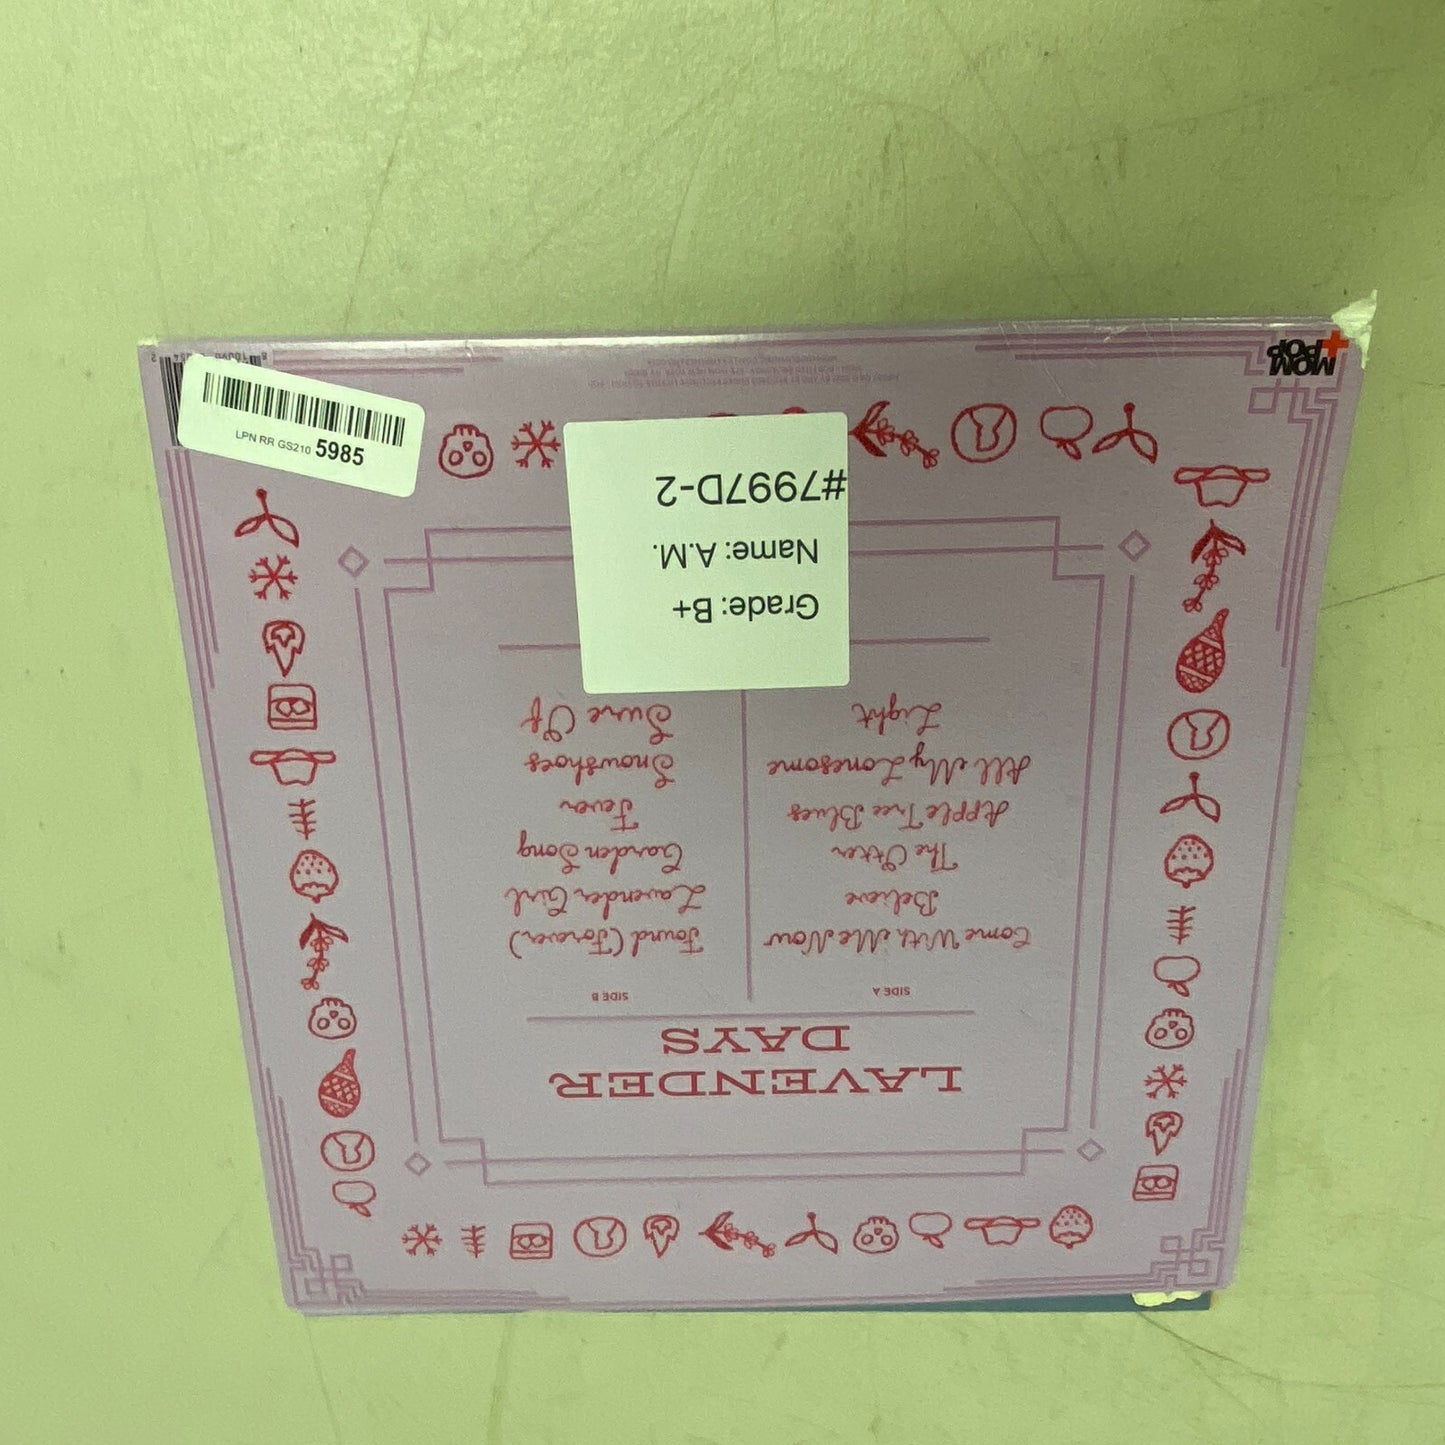 LAVENDER
DAYS
SIDE A
Come With Me Now
Believe
The Otter
Apple Tree Blues
All My Lonesome
Light
SIDE B
Found (Forever)
Lavender Girl
Garden Song
Fever
Snowshoes
Sure Of
Grade: B+
Name: A.M.
#7997D-2
MOM
+POP
LPN RR GS210 5985